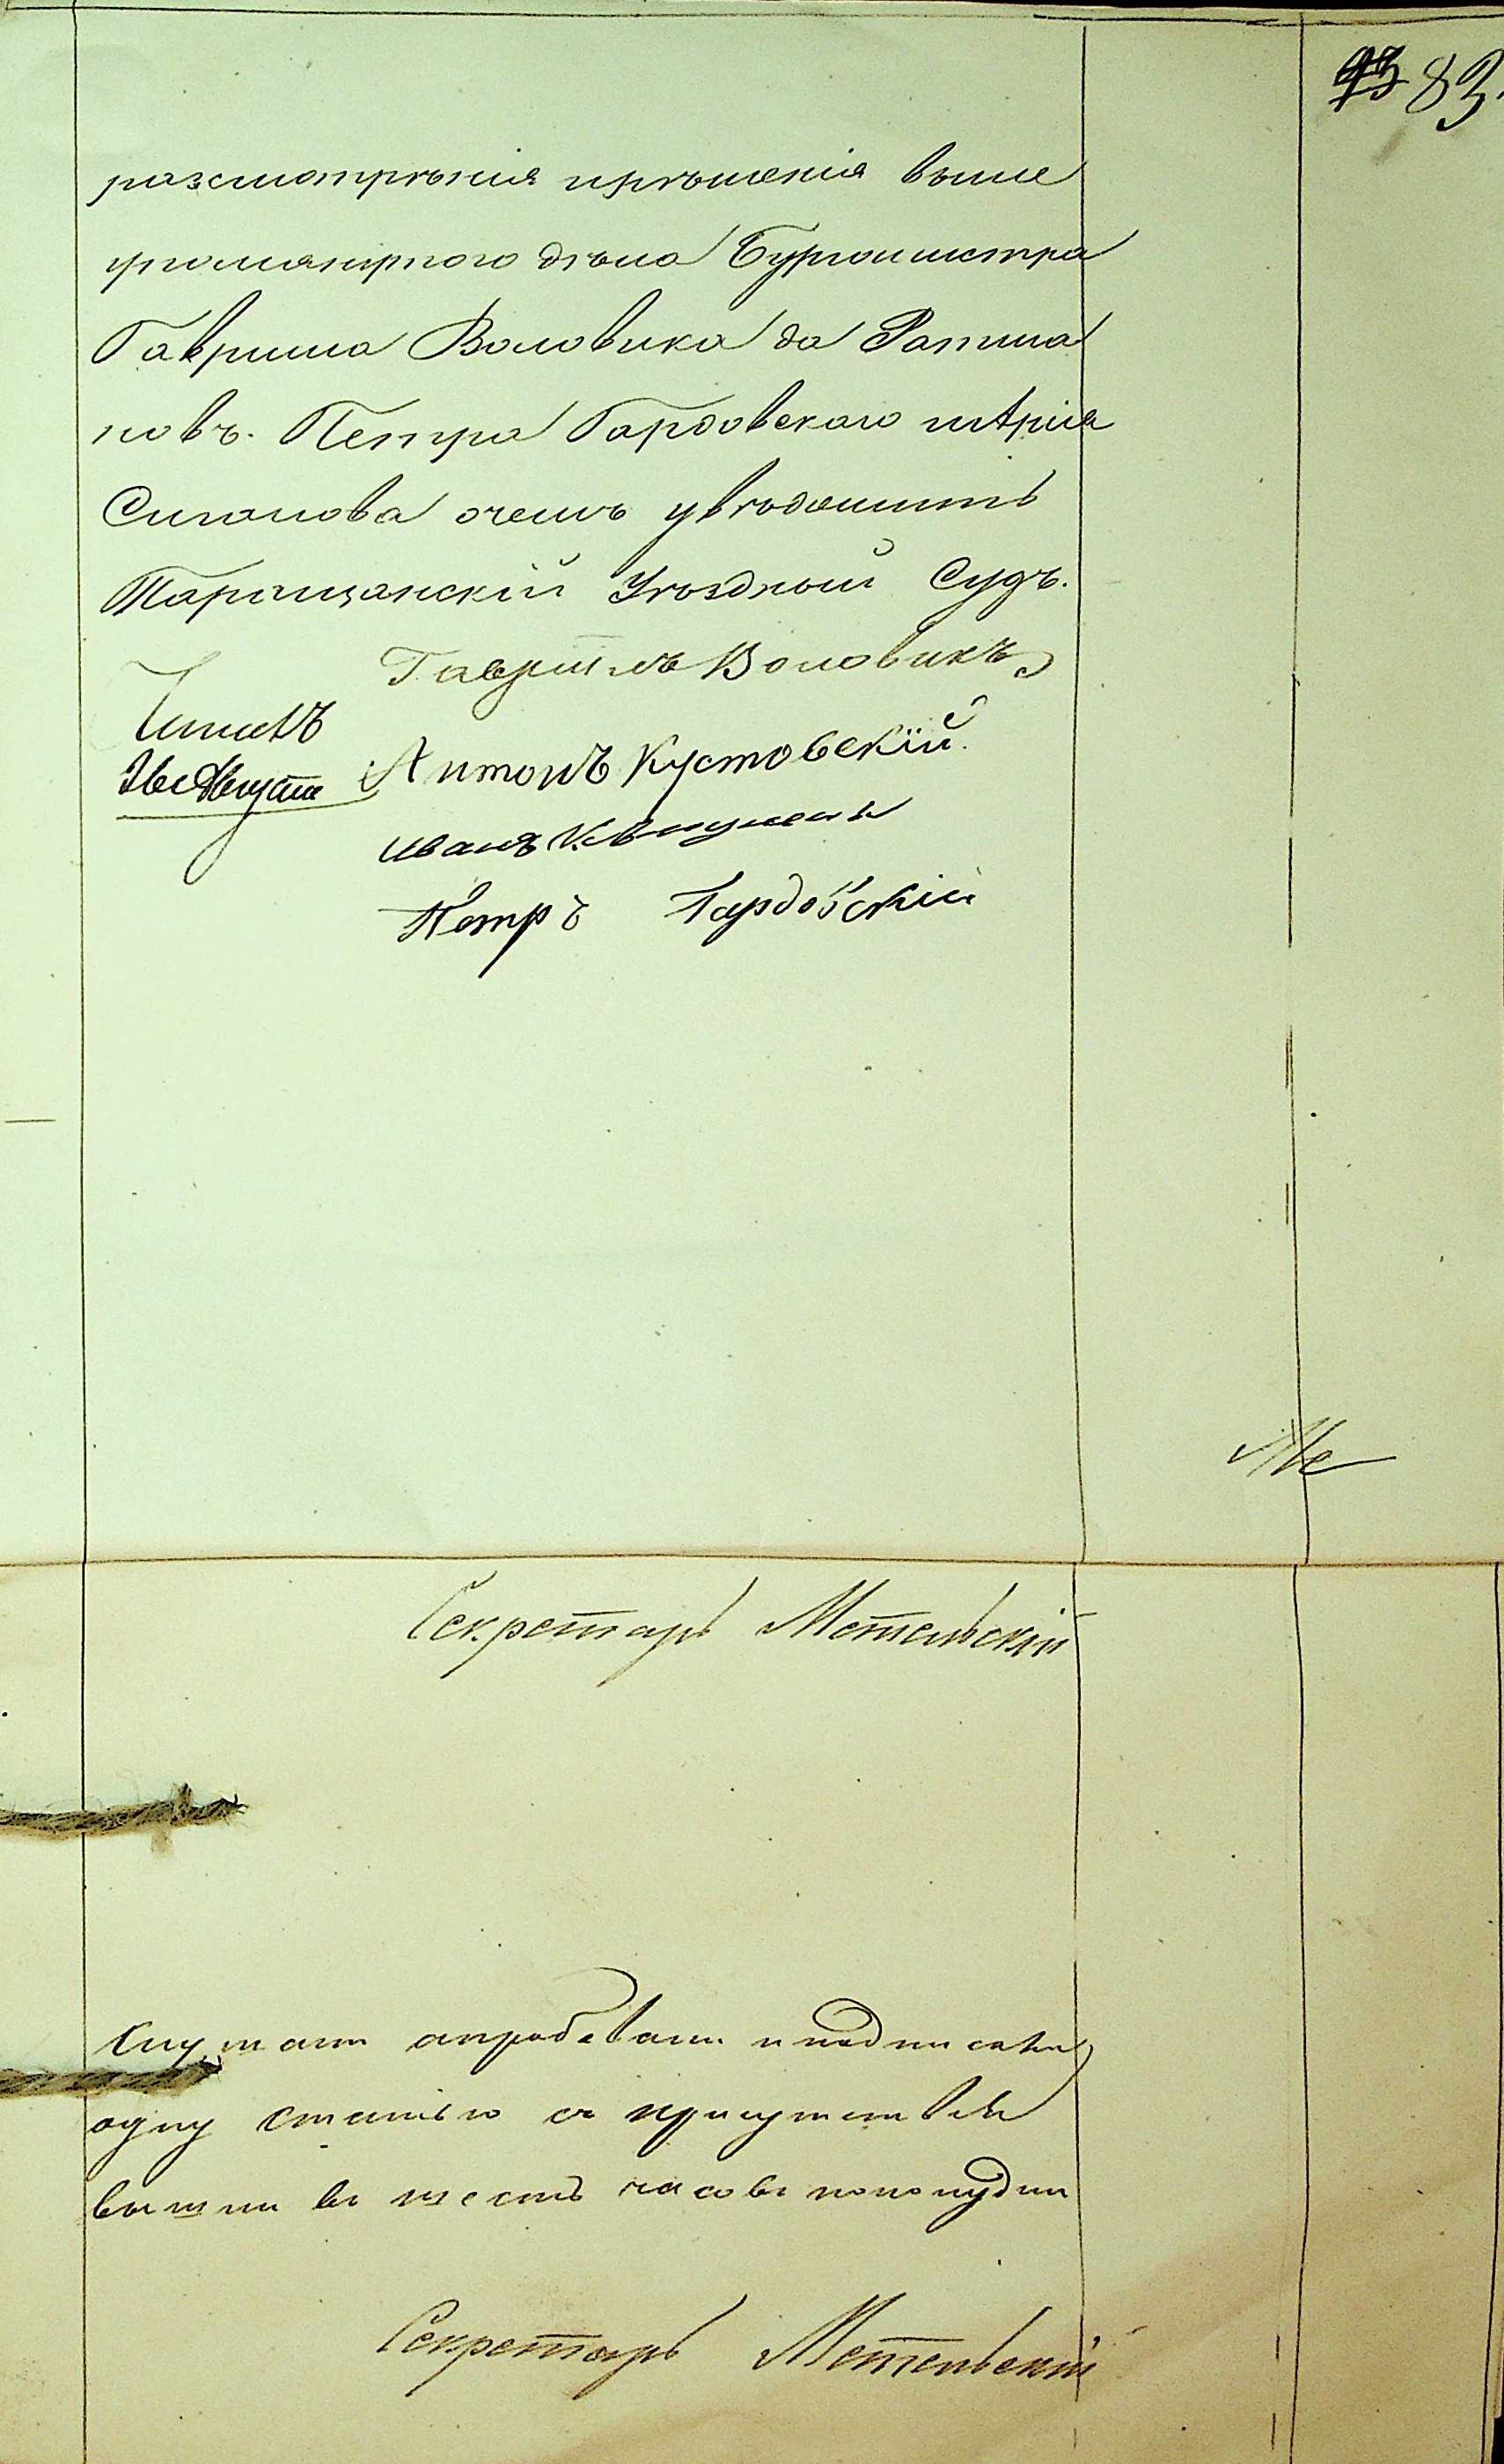 83.
разсмотрѣнія ирѣшенія выше
упомянутого дѣла Бургомистра
Гаврила Воловика да Ратма
новъ. Петра Гардовскаго
очемъ увѣдомить
Таращанскій Уѣздный Судъ.
Гавріилъ Воловикъ
Антонъ Кустовскій.
Августа
Иванъ
Петръ Гардовскій
Секретарь Метельскій
Слушали апробовали иподписали
одну статью съ присутствія
вышли въ шесть часовъ пополудни
Секретарь Метельскій